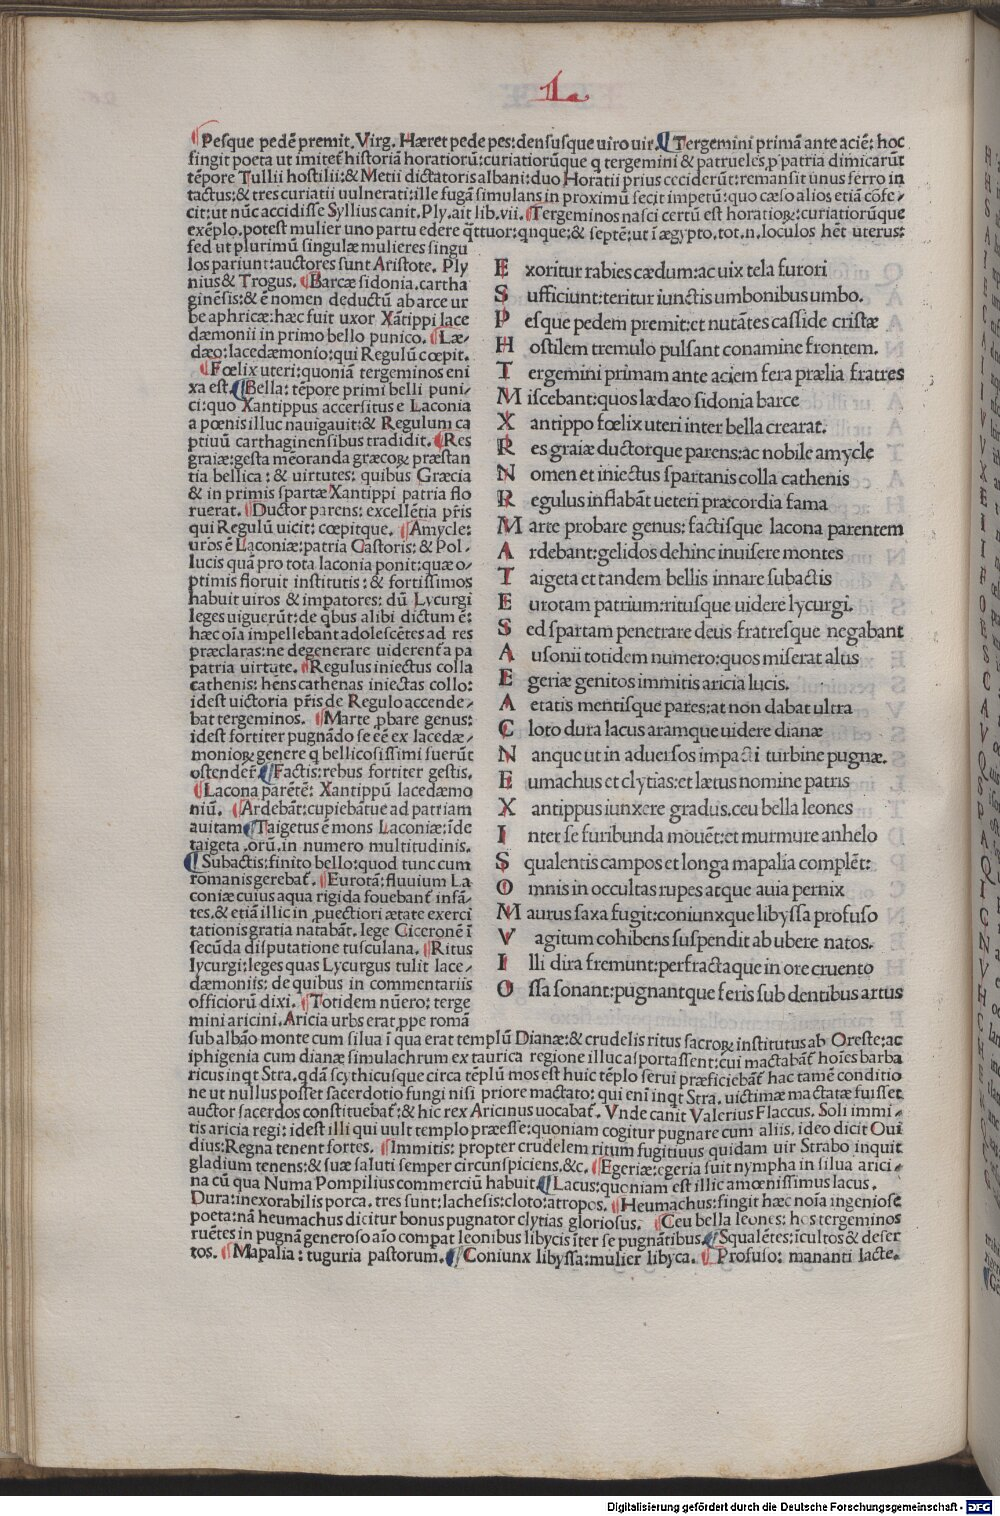 L
¶Pesque pedē premit. Virg. Hæret pede pes: densusque uiro uir. ¶Tergemini primā ante aciē: hoc
fingit poeta ut imitet᷑ historiā horatiorū: curiatiorūque q tergemini & patrueles, p patria dimicarūt
tēpore Tullii hostilii: & Metii dictatoris albani: duo Horatii prius ceciderūt: remansit unus ferro in
tactus: & tres curiatii uulnerati: ille fugā simulans in proximū fecit impetū: quo cæso alios etiā cōfe-
cit: ut nūc accidisse Syllius canit. Ply. ait lib. vii. ¶Tergeminos nasci certū est horatioꝝ: curiatiorūque
exēplo. potest mulier uno partu edere q̄ttuor: qnque: & septē: ut ī ægypto. tot. n. loculos hēt uterus:
sed ut plurimū singulæ mulieres singu
los pariunt: auctores sunt Aristote. Ply
nius & Trogus. ¶Barcæ sidonia. cartha
ginēsis: & ē nomen deductū ab arce ur
be aphricæ: hæc fuit uxor Xātippi lace
dæmonii in primo bello punico. ¶Læ-
dæo: lacedæmonio: qui Regulū cœpit.
¶Fœlix uteri: quoniā tergeminos eni
xa est. ¶Bella: tēpore primi belli puni-
ci: quo Xantippus accersitus e Laconia
a pœnis illuc nauigauit: & Regulum ca
ptiuū carthaginensibus tradidit. ¶Res
graiæ: gesta mēoranda græcoꝝ præstan
tia bellica: & uirtutes: quibus Græcia
& in primis spartæ Xantippi patria flo
ruerat. ¶Ductor parens: excellētia p̄ris
qui Regulū uicit: cœpitque. ¶Amycle:
uros ē Laconiæ: patria Castoris: & Pol-
lucis quā pro tota laconia ponit: quæ o-
ptimis floruit institutis: & fortissimos
habuit uiros & impatores: dū Lycurgi
leges uiguerūt: de qbus alibi dictum ē:
hæc oīa impellebant adolescētes ad res
præclaras: ne degenerare uiderent᷑ a pa
patria uirtute. ¶Regulus iniectus colla
cathenis: hēns cathenas iniectas collo:
idest uictoria p̄ris de Regulo accende-
bat tergeminos. ¶Marte, pbare genus:
idest fortiter pugnādo se eē ex lacedæ-
monioꝝ genere q bellicosissimi fuerūt
ostender᷑. ¶Factis: rebus fortiter gestis.
¶Lacona parētē: Xantippū lacedæmo
niū. ¶Ardebāt: cupiebātue ad patriam
auitam ¶Taigetus ē mons Laconiæ: īde
taigeta. orū. in numero multitudinis.
¶Subactis: finito bello: quod tunc cum
romanis gerebat᷑. ¶Eurotā: fluuium La
coniæ cuius aqua rigida fouebant᷑ infā-
tes. & etiā illic in, puectiori ætate exerci
tationis gratia natabāt. lege Ciceronē ī
secūda disputatione tusculana. ¶Ritus
lycurgi: leges quas Lycurgus tulit lace-
dæmoniis: de quibus in commentariis
officiorū dixi. ¶Totidem nūero: terge
mini aricini. Aricia urbs erat, ppe romā
E xoritur rabies cædum: ac uix tela furori
S ufficiunt: teritur iunctis umbonibus umbo.
P esque pedem premit: et nutātes casside cristæ
H ostilem tremulo pulsant conamine frontem.
T ergemini primam ante aciem fera prælia fratres
M iscebant: quos lædæo sidonia barce
X antippo fœlix uteri inter bella crearat.
R es graiæ ductorque parens: ac nobile amycle
N omen et iniectus spartanis colla cathenis
R egulus inflabāt ueteri præcordia fama
M arte probare genus: factisque lacona parentem
A rdebant: gelidos dehinc inuisere montes
T aigeta et tandem bellis innare subactis
E urotam patrium: ritusque uidere lycurgi.
S ed spartam penetrare deus fratresque negabant
A usonii totidem numero: quos miserat altis
E geriæ genitos immitis aricia lucis.
A etatis mentisque pares: at non dabat ultra
C loto dura lacus aramque uidere dianæ
N anque ut in aduersos impacti turbine pugnæ.
E umachus et clytias: et lætus nomine patris
X antippus iunxere gradus. ceu bella leones
I nter se furibunda mouēt: et murmure anhelo
S qualentis campos et longa mapalia complēt:
O mnis in occultas rupes atque auia pernix
M aurus saxa fugit: coniunxque libyssa profuso
V agitum cohibens suspendit ab ubere natos.
I lli dira fremunt: perfractaque in ore cruento
O ssa sonant: pugnantque feris sub dentibus artus
sub albāo monte cum silua ī qua erat templū Dianæ: & crudelis ritus sacroꝝ institutus ab Oreste: ac
iphigenia cum dianæ simulachrum ex taurica regione illuc asportassent: cui mactabāt᷑ hoīes barba
ricus inqt Stra. qdā scythicusque circa tēplū mos est huic tēplo serui præficiebāt᷑ hac tamē conditio
ne ut nullus posset sacerdotio fungi nisi priore mactato: qui enī inqt Stra. uictimæ mactatæ fuisset
auctor sacerdos constituebat᷑: & hic rex Aricinus uocabat᷑. Vnde canit Valerius Flaccus. Soli immi-
tis aricia regi: idest illi qui uult templo præesse: quoniam cogitur pugnare cum aliis. ideo dicit Oui
dius: Regna tenent fortes. ¶Immitis: propter crudelem ritum fugitiuus quidam uir Strabo inquit
gladium tenens: & suæ saluti semper circunspiciens. &c. ¶Egeriæ: egeria fuit nympha in silua arici-
na cū qua Numa Pompilius commerciū habuit. ¶Lacus: quoniam est illic amœnissimus lacus.
Dura: inexorabilis porca. tres sunt: lachesis: cloto: atropos. ¶Heumachus: fingit hæc noīa ingeniose
poeta: nā heumachus dicitur bonus pugnator clytias gloriosus. ¶Ceu bella leones: hos tergeminos
ruētes in pugnā generoso aīo compat leonibus libycis īter se pugnātibus. ¶Squalētes: īcultos & deser
tos. ¶Mapalia: tuguria pastorum. ¶Coniunx libyssa: mulier libyca. ¶Profuso: mananti lacte.
Digitalisierung gefördert durch die Deutsche Forschungsgemeinschaft - DFG